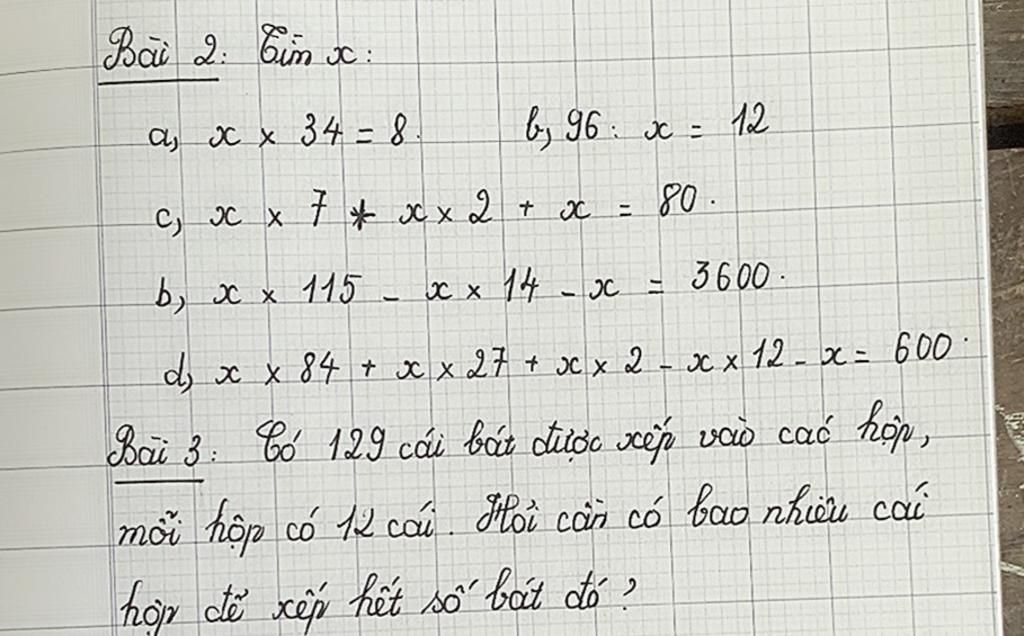 Bài 2: Tìm x:
a, x × 34 = 8. b, 96 : x = 12
c, x × 7 + x × 2 + x = 80.
b, x × 115 - x × 14 - x = 3600.
d, x × 84 + x × 27 + x × 2 - x × 12 - x = 600.
Bài 3: Có 129 cái bát được xếp vào các hộp,
mỗi hộp có 12 cái. Hỏi cần có bao nhiêu cái
hộp để xếp hết số bát đó?